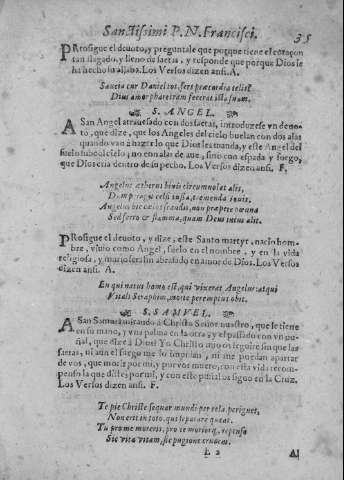 Sanctissimi P. N. Francisci. 35
PRosigue el deuoto, y preguntale que porque tiene el coraçon
tan llagado, y lleno de saetas, y responde que porque Dios se
ha hecho su aljaba. Los Versos dizen ansi. A.
Sancta cur Daniel tot fers præcordia telis?
Dius amor pharetram fecerat ista suam.
S. ANGEL.
A San Angel atrauesado con dos saetas, introduzese vn deuo-
to, que dize, que los Angeles del cielo buelan con dos alas
quando van à hazer lo que Dios les manda, y este Angel del
suelo subió al cielo, no con alas de aue, sino con espada y fuego,
que Dios tenia dentro de su pecho. Los Versos dizen ansi. F.
Angelus æthereus binis circumuolat alis,
Dum peragit celsi iussa, tremenda Iouis.
Angelus hic cælos scandit, non præpete penna
Sed ferro & flamma, quam Deus intus alit.
PRosigue el deuoto, y dize, este Santo martyr, nacio hom-
bre, viuio como Angel, suelo en el nombre, y en la vida
religiosa, y murio serafin abrasado en amor de Dios. Los Versos
dizen ansi. A.
En qui natus homo est, qui vixerat Angelus: atqui
Vitalis Seraphim, morte peremptus obit.
S. SAMVEL.
A San Samuel mirando à Christo Señor nuestro, que le tiene
en su mano, y vna palma en la otra y el passado con vn pu-
ñal, que dize à Dios! Yo Christo mio os seguire sin que las
saetas, ni aun el fuego me lo impidan, ni me puedan apartar
de vos, que moris por mi, y por vos muero, con esta vida recom-
penso la que distes por mi, y con este puñal os sigo en la Cruz.
Los Versos dizen ansi. F.
Te pie Christe sequar mundi per tela, per ignes,
Non erit in toto, qui separare queat.
Tu pro me moreris, pro te moriorq, repenso
Sic vita vitam, sic pugione crucem.
L 2 Al